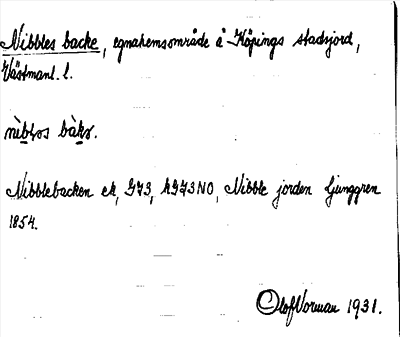 Nibbles backe, egnahemsområde å Köpings stadsjord,
Västmanl. l.
Nibblebacken ek, GJ3, NO, Nibble jorden Ljunggren
1854.
Olof Norman 1931.